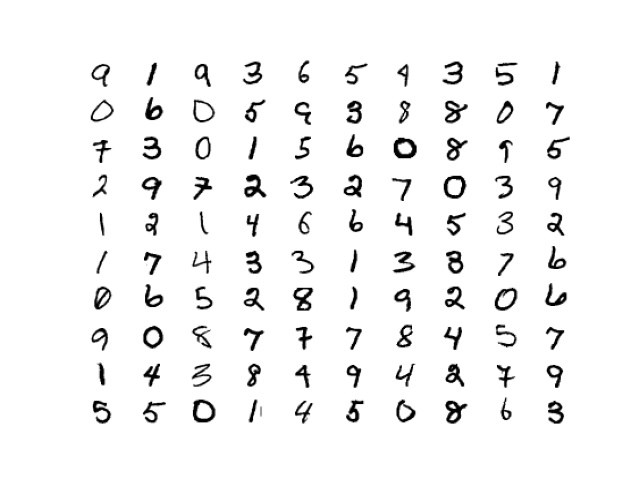 9 1 9 3 6 5 4 3 5 1
0 6 0 5 9 3 8 8 0 7
7 3 0 1 5 6 0 8 9 5
2 9 7 2 3 2 7 0 3 9
1 2 1 4 6 6 4 5 3 2
1 7 4 3 3 1 3 8 7 6
0 6 5 2 8 1 9 2 0 6
9 0 8 7 7 7 8 4 5 7
1 4 3 8 4 9 4 2 7 9
5 5 0 1 4 5 0 8 6 3